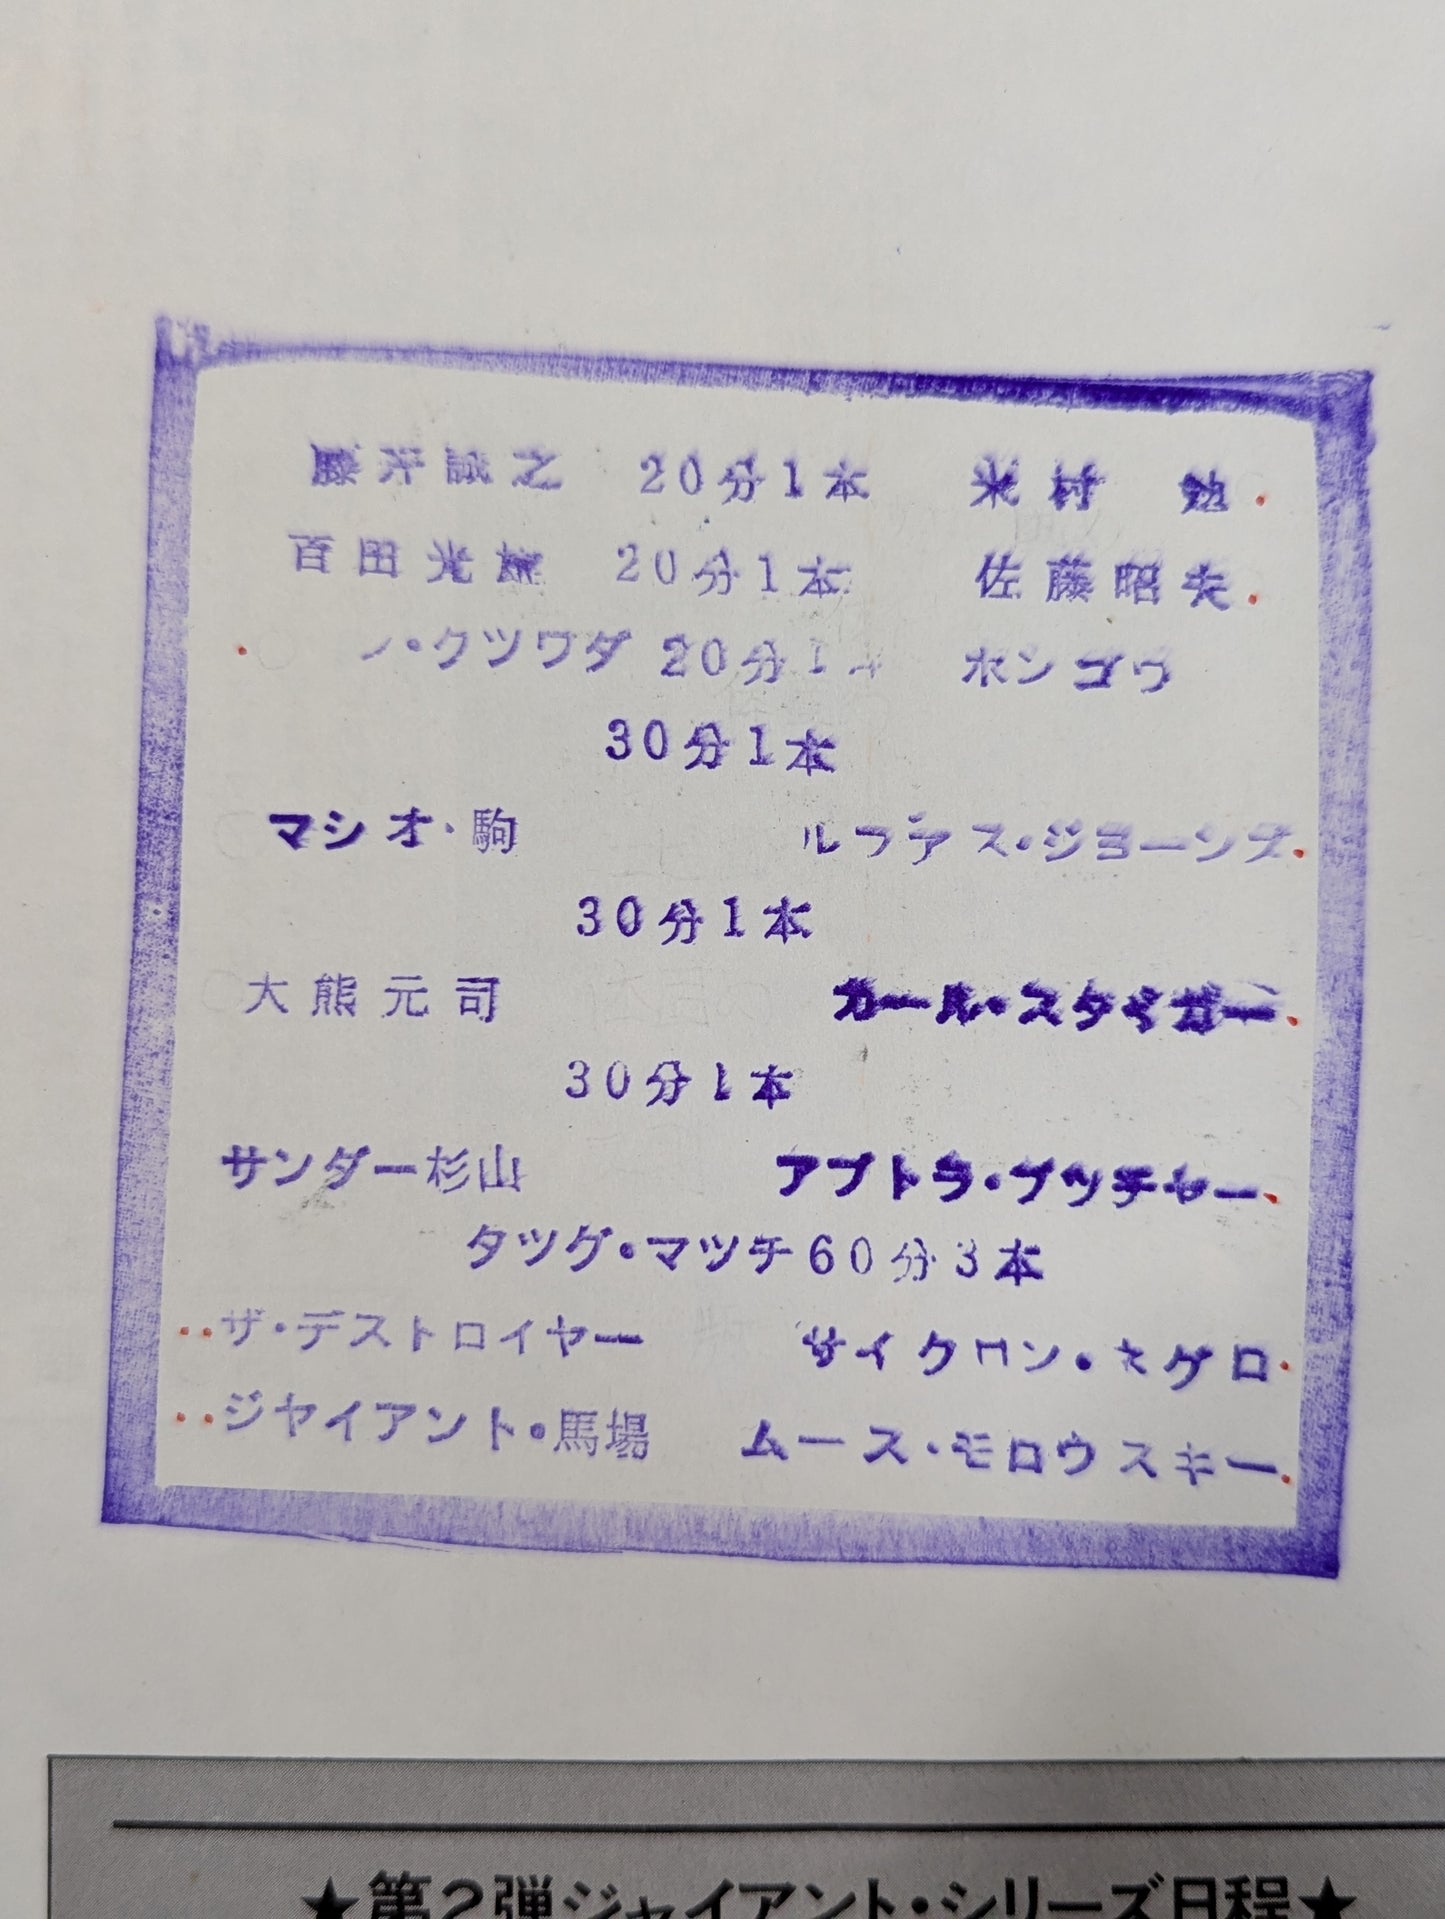 藤井誠之 20分1本 米村 勉
百田光雄 20分1本 佐藤昭夫
ノ・クツワダ 20分1本 ホンゴウ
30分1本
マシオ・駒 ルフアス・ジヨーンズ
30分1本
大熊元司 カール・スタイガー
30分1本
サンダー杉山 アブトラ・ブツチヤー
タツグ・マツチ60分3本
ザ・デストロイヤー サイクロン・ネグロ
ジヤイアント・馬場 ムース・モロウスキー
★第2弾ジャイアント・シリーズ日程★